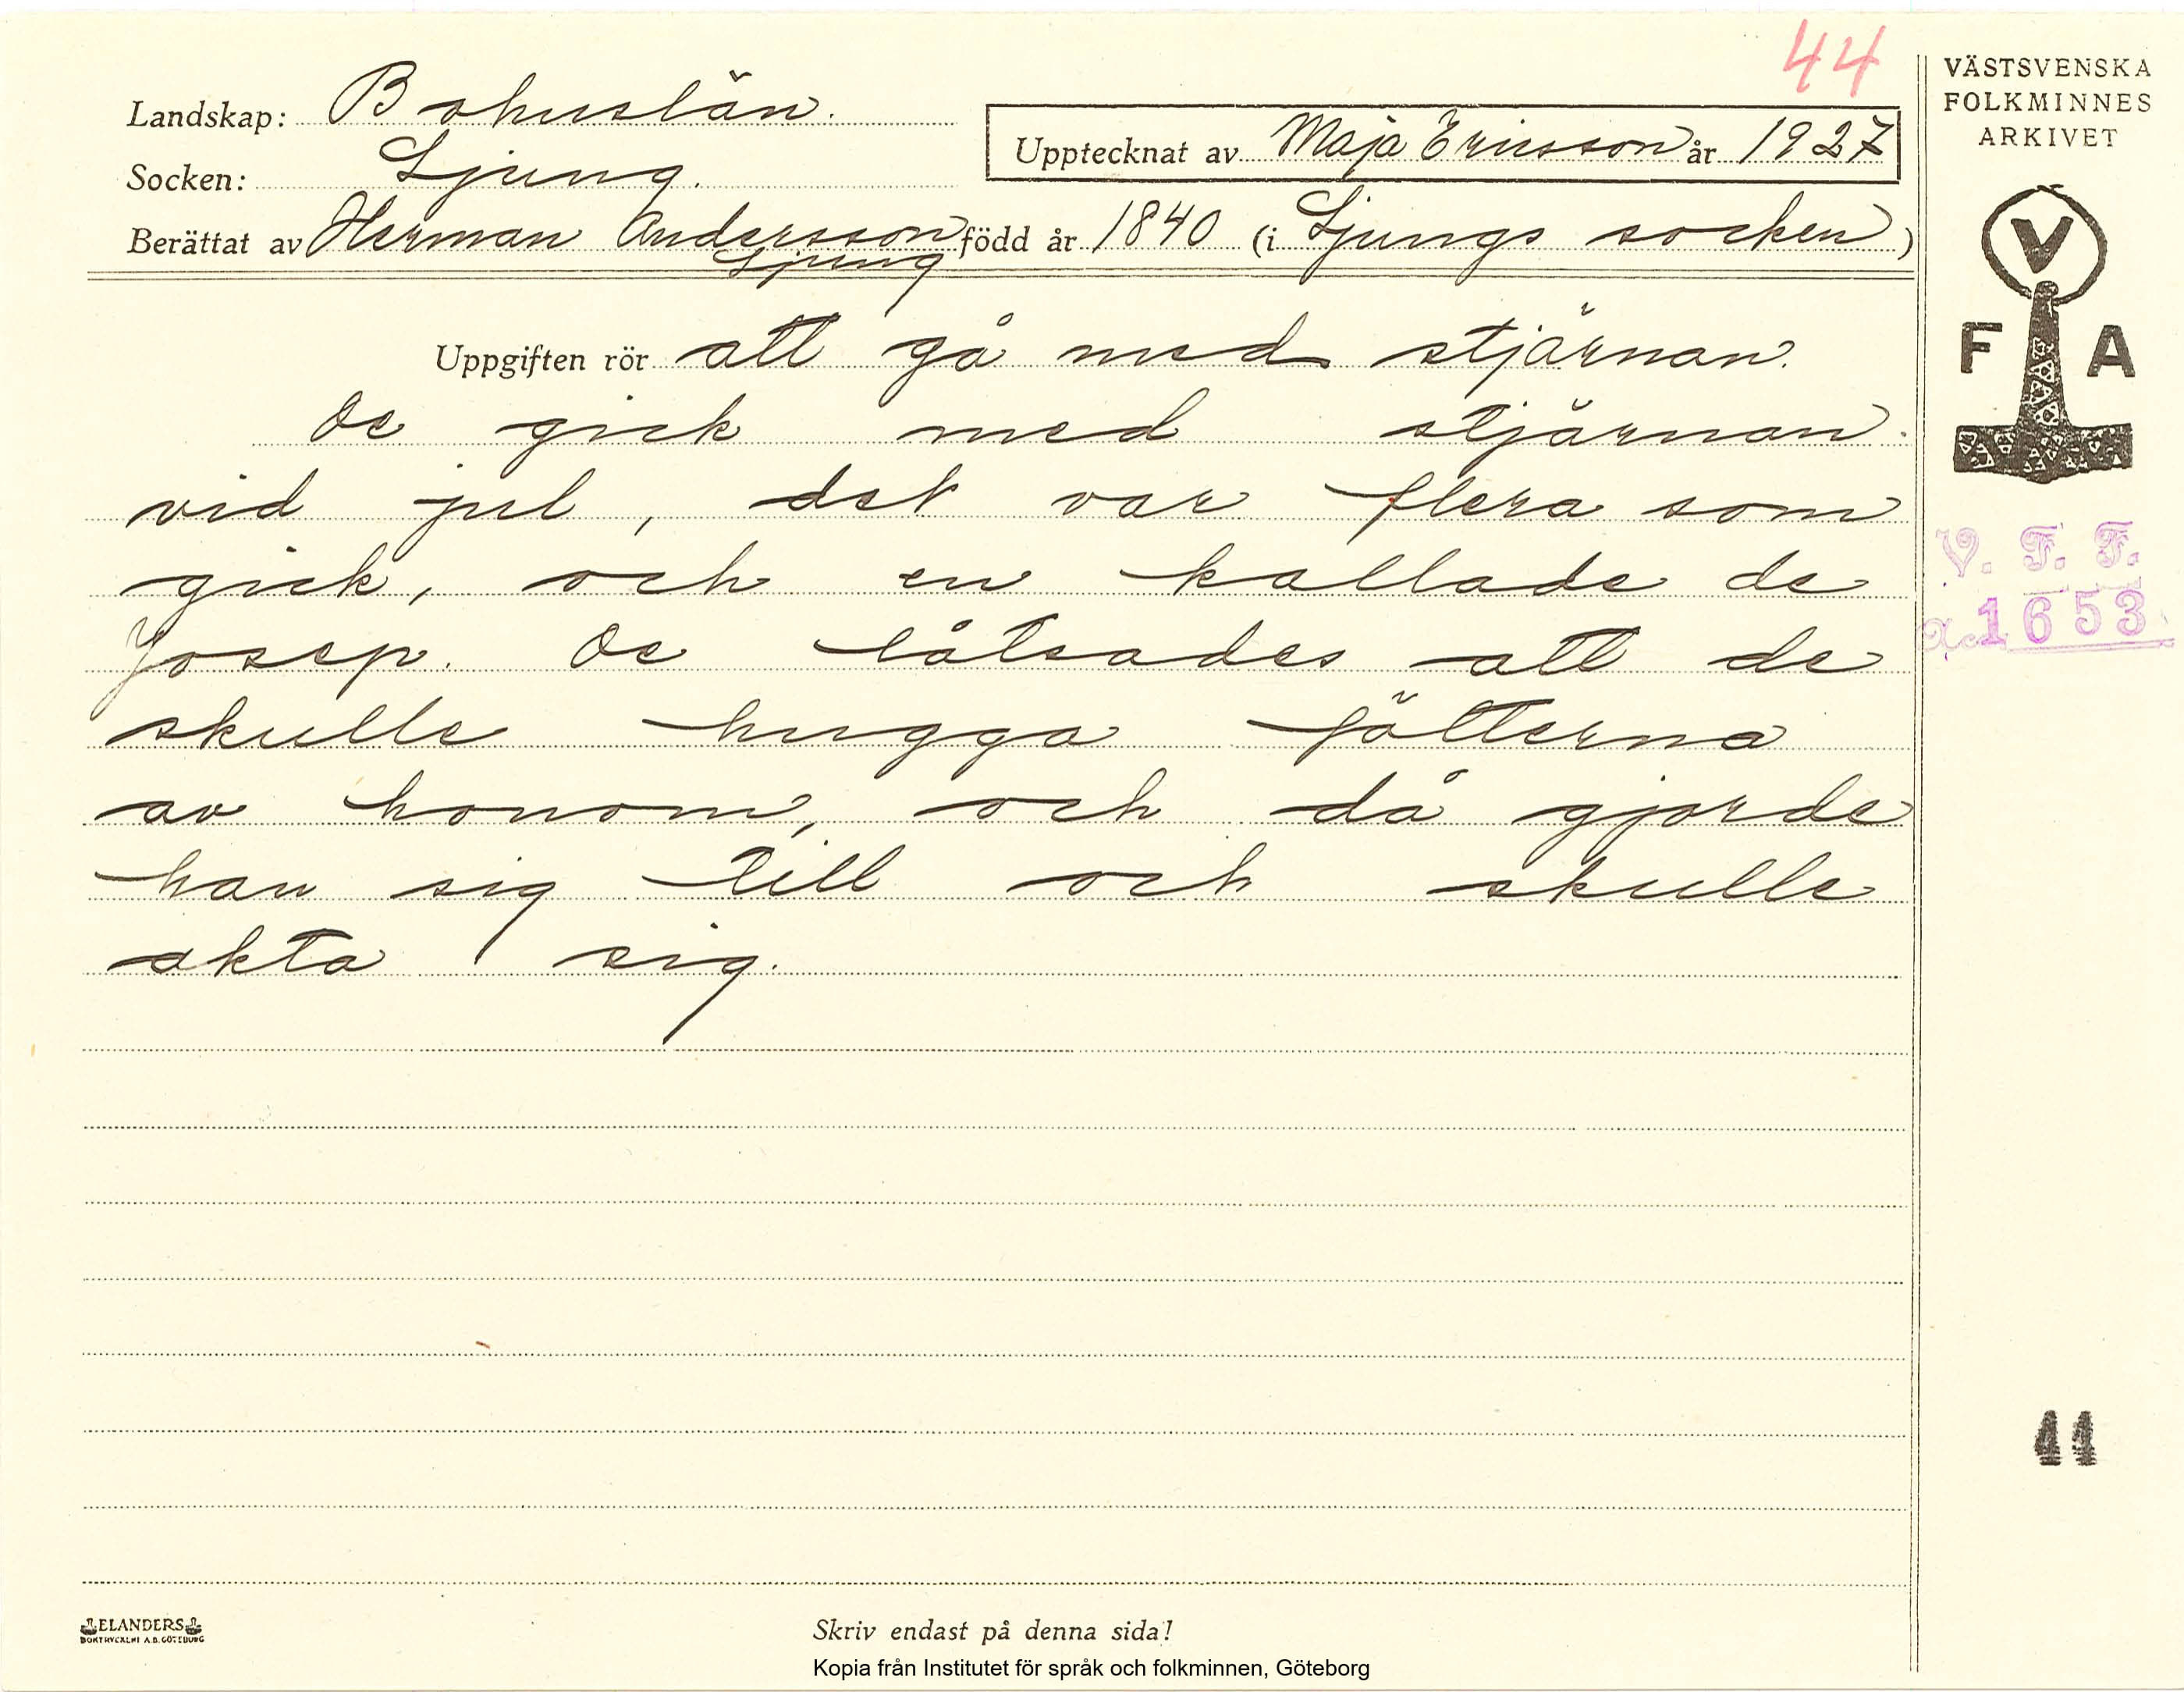 44
Landskap: Bohuslän.
Socken: Ljung.
Upptecknat av Maja Ericsson år 1927
Berättat av Herman Andersson född år 1840 (i Ljungs socken)
Ljung
Uppgiften rör att gå med stjärnan.
De gick med stjärnan
vid jul, det var flera som
gick, och en kallade de
Josep. De låtsades att de
skulle hugga fötterna
av honom, och då gjorde
han sig till och skulle
akta sig.
VÄSTSVENSKA
FOLKMINNES
ARKIVET
V
F A
V. F. F.
Acc. 1653
44
ELANDERS
BOKTRYCKERI A.B. GÖTEBORG
Skriv endast på denna sida!
Kopia från Institutet för språk och folkminnen, Göteborg